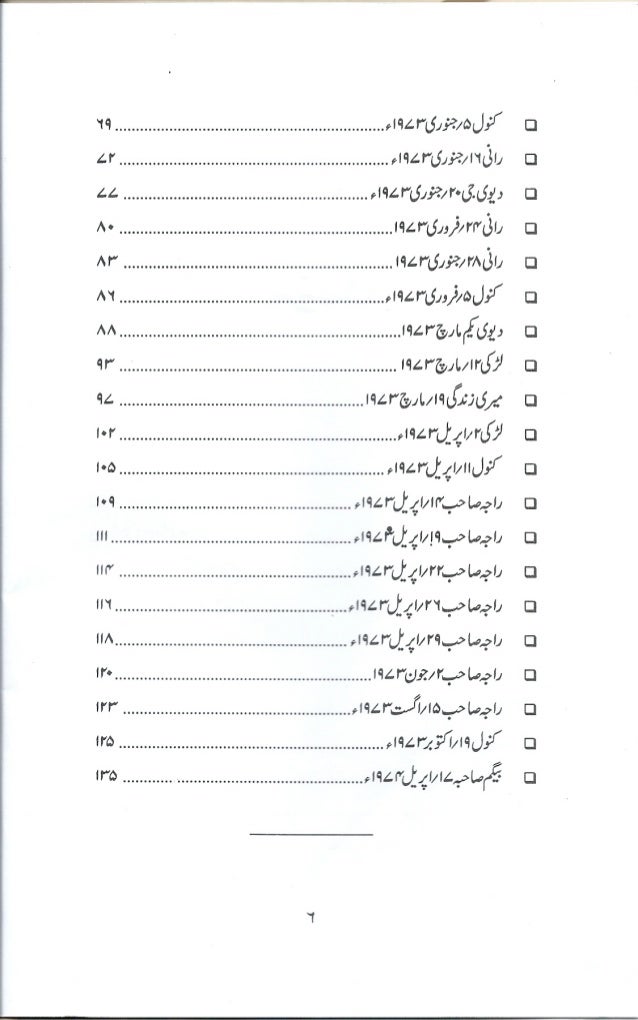 ❑ کنول ۵؍جنوری ۱۹۷۳ء ........ ۶۹
❑ رانی ۱۶؍جنوری ۱۹۷۳ء ........ ۷۲
❑ دیوی جی ۲۰؍جنوری ۱۹۷۳ء ........ ۷۷
❑ رانی ۲۴؍فروری ۱۹۷۳ ........ ۸۰
❑ رانی ۲۸؍جنوری ۱۹۷۳ ........ ۸۳
❑ کنول ۵؍فروری ۱۹۷۳ء ........ ۸۶
❑ دیوی یکم مارچ ۱۹۷۳ ........ ۸۸
❑ لڑکی ۱۲؍مارچ ۱۹۷۳ ........ ۹۳
❑ میری زندگی ۱۹؍مارچ ۱۹۷۳ ........ ۹۷
❑ لڑکی ۲؍اپریل ۱۹۷۳ء ........ ۱۰۲
❑ کنول ۱۱؍اپریل ۱۹۷۳ء ........ ۱۰۵
❑ راجہ صاحب ۱۴؍اپریل ۱۹۷۳ء ........ ۱۰۹
❑ راجہ صاحب ۱۹؍اپریل ۱۹۷۳ء ........ ۱۱۱
❑ راجہ صاحب ۲۲؍اپریل ۱۹۷۳ء ........ ۱۱۴
❑ راجہ صاحب ۲۶؍اپریل ۱۹۷۳ء ........ ۱۱۶
❑ راجہ صاحب ۲۹؍اپریل ۱۹۷۳ء ........ ۱۱۸
❑ راجہ صاحب ۲؍جون ۱۹۷۳ ........ ۱۲۰
❑ راجہ صاحب ۱۵؍اگست ۱۹۷۳ء ........ ۱۲۳
❑ کنول ۱۹؍اکتوبر ۱۹۷۳ء ........ ۱۲۵
❑ بیگم صاحبہ ۱۷؍اپریل ۱۹۷۴ء ........ ۱۳۵
۶